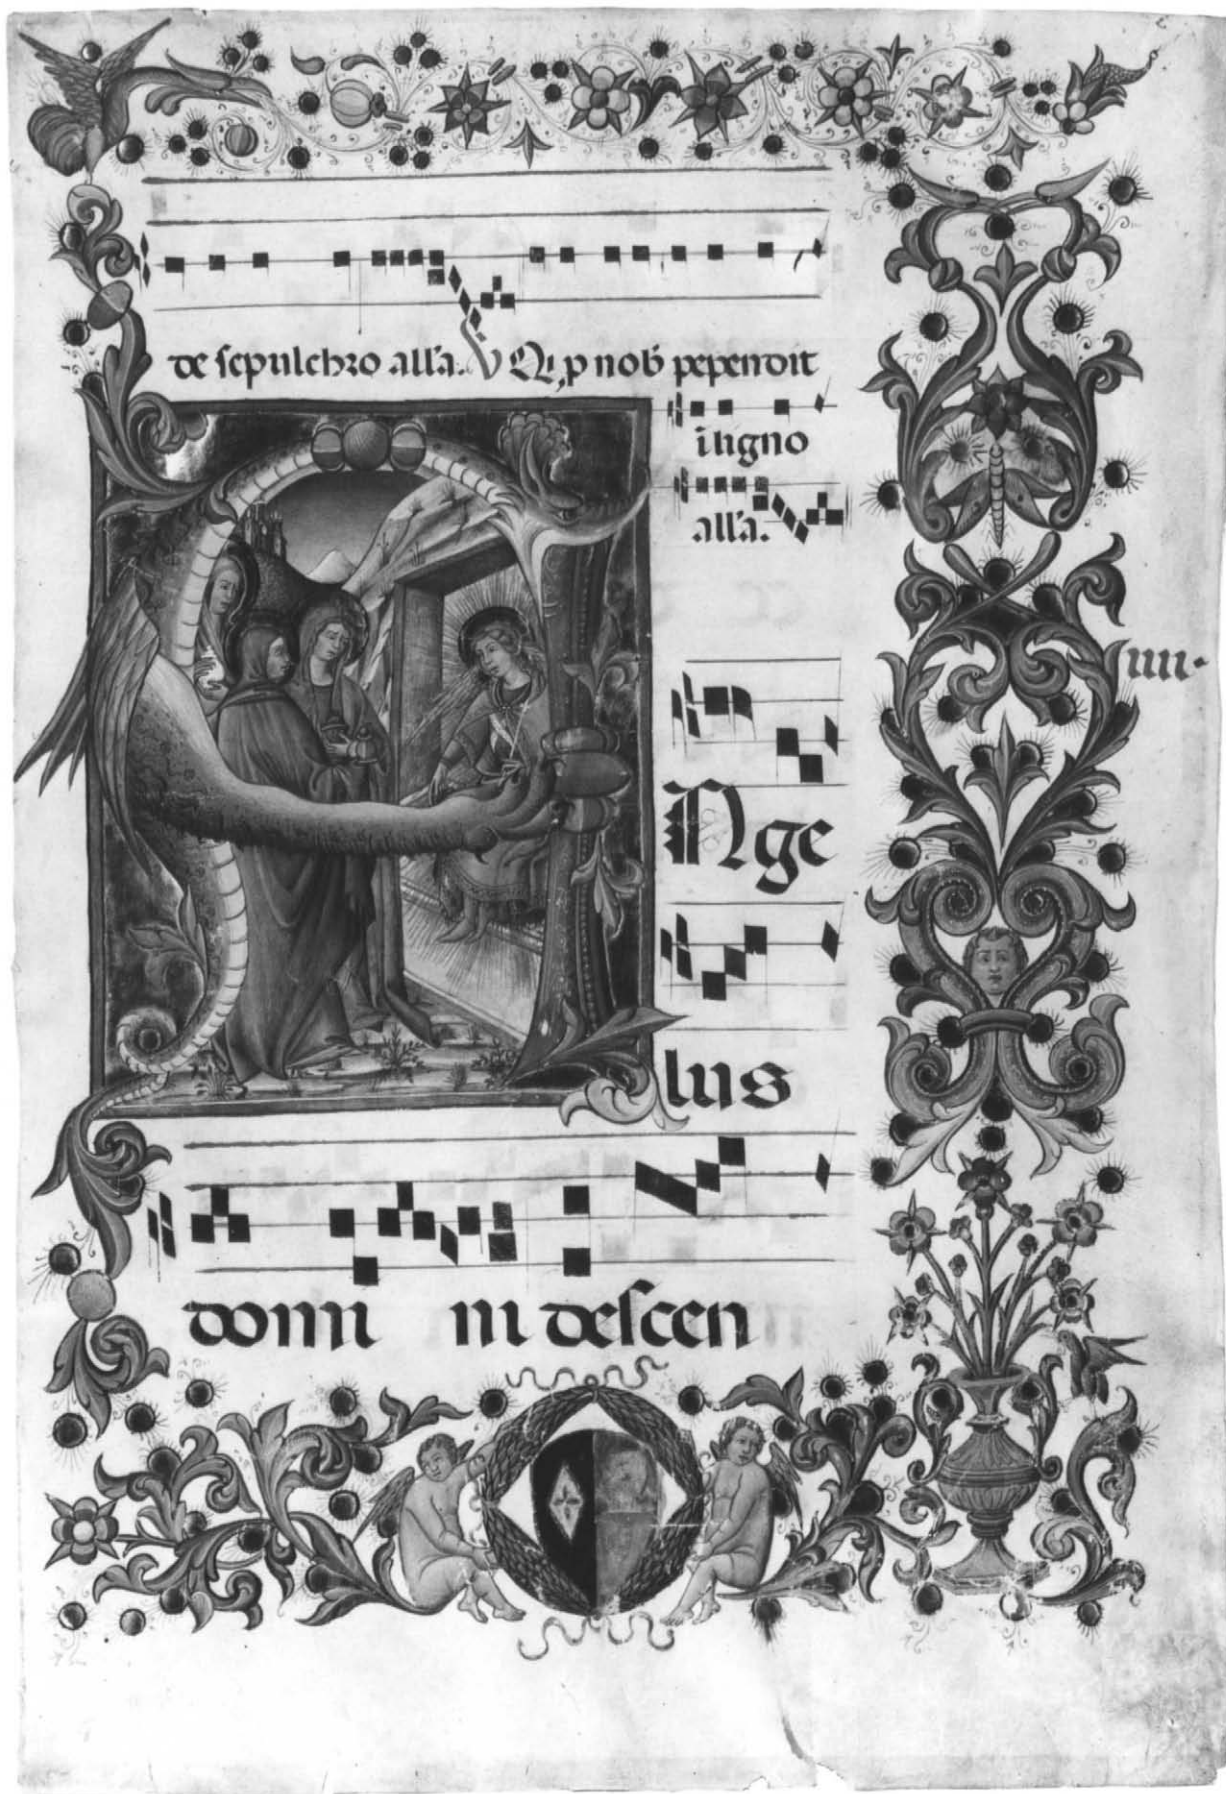 de sepulchro alla. V Qi p nob pependit
in ligno
alla.
iiii.
Ange
lus
domi ni descen